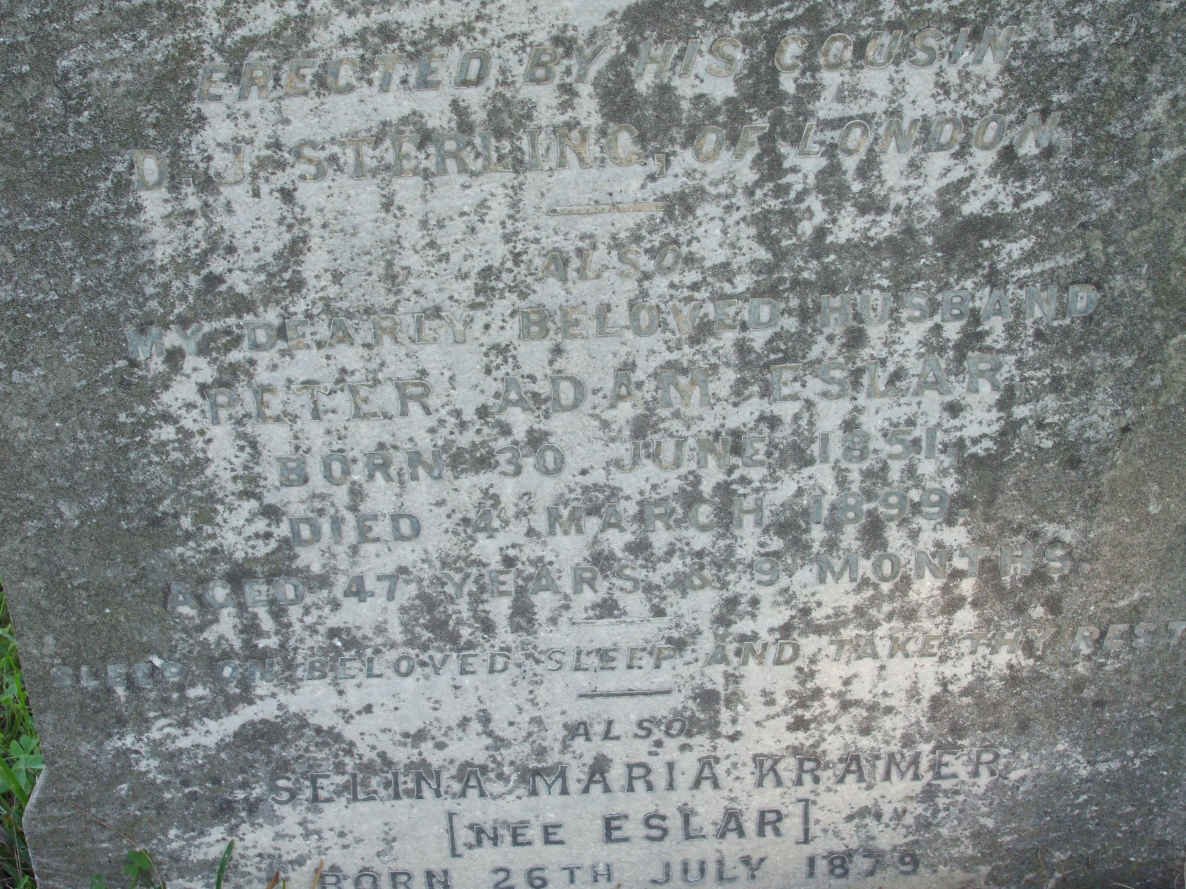 ERECTED BY HIS COUSIN
D. J. STERLING, OF LONDON.
ALSO
MY DEARLY BELOVED HUSBAND
PETER ADAM ESLAR
BORN 30 JUNE 1851
DIED 4 MARCH 1899
AGED 47 YEARS & 9 MONTHS
SLEEP ON BELOVED SLEEP AND TAKE THY REST
ALSO
SELINA MARIA KRAMER
[NEE ESLAR]
BORN 26TH JULY 1879